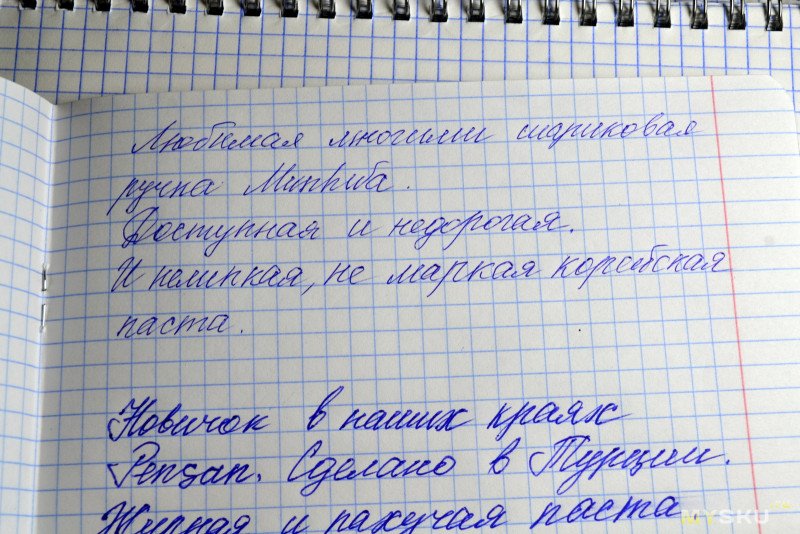 Любимая многими шариковая
ручка
Доступная и недорогая.
И нелипкая, не маркая корейская
паста.
Новичок в наших краях
Pensan. Сделано в Турции.
Жирная и пахучая паста.
MYSKU